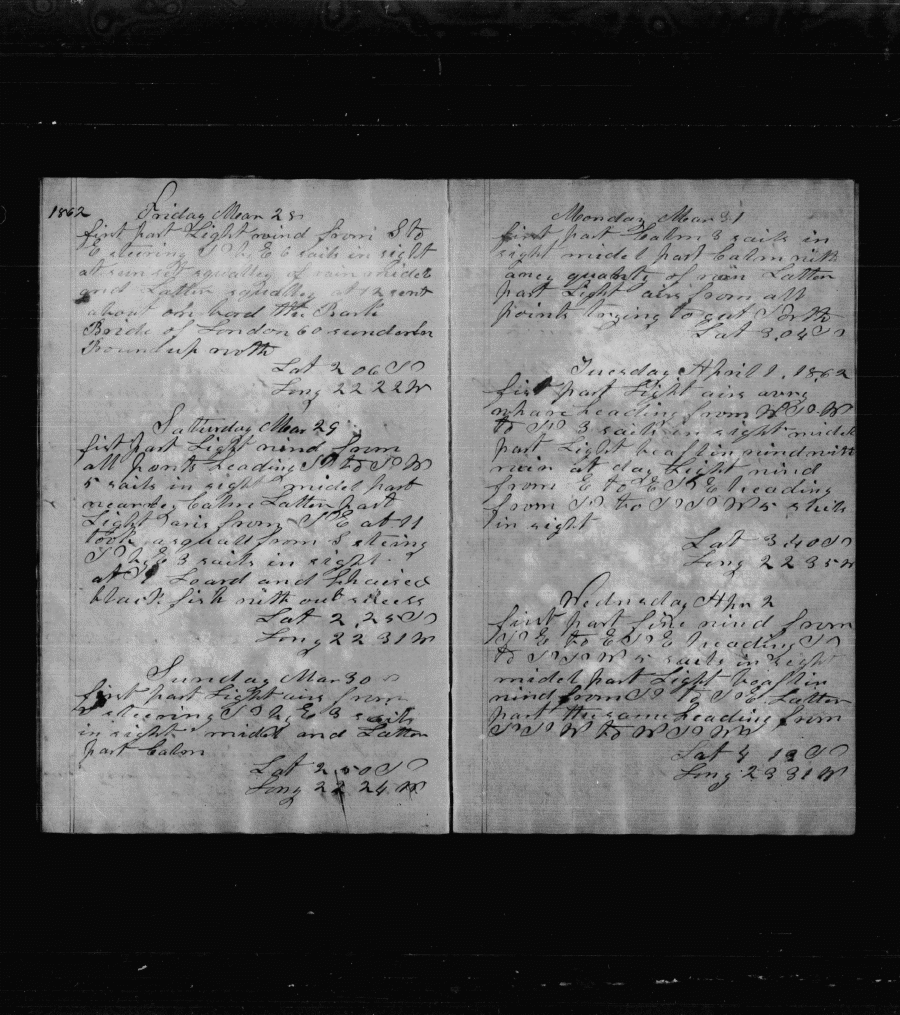 1862 Friday Mar 28
first part Light wind from S to
E steering S by E 6 sails in sight
at sun set squalley of rain midel
and Latter squalley at 12 went
about on bord the Bark
Bride of London 60 sunderlen
Bound up north
Lat 2 06 S
Long 22 22 W
Saturday Mar 29
first part Light wind from
all points heading S to S W
5 sails in sight midel part
near by Calm Latter part
Light airs from S E at 11
took a squall from S stering
S by E 3 sails in sight
at Loard and Chaised
black fish with out sucess
Lat 2,25 S
Long 22 31 W
Sunday Mar 30
first part Light airs from
steering S by E 3 sails
in sight midel and Latter
part Calm
Lat 2,50 S
Long 22 24 W
Monday Mar 31
first part Calm 3 sails in
sight midel part Calm with
a quanty of rain Latter
part Light airs from all
points trying to get South
Lat 3,04 S
Tuesday April 1, 1862
first part Light airs avry
whare heading from W S W
to S 3 sails in sight midel
part Light beaflin wind with
rain at day Light wind
from E to E S E heading
from S to S S W 5 sails
in sight
Lat 3 40 S
Long 22 35 W
Wednsday Apr 2
first part fine wind from
S E to E S E heading S
to S S W 5 sails in sight
midel part Light beaflin
wind from S to S E Latter
part the same heading from
S S W to W S W
Lat 4 12 S
Long 23 31 W